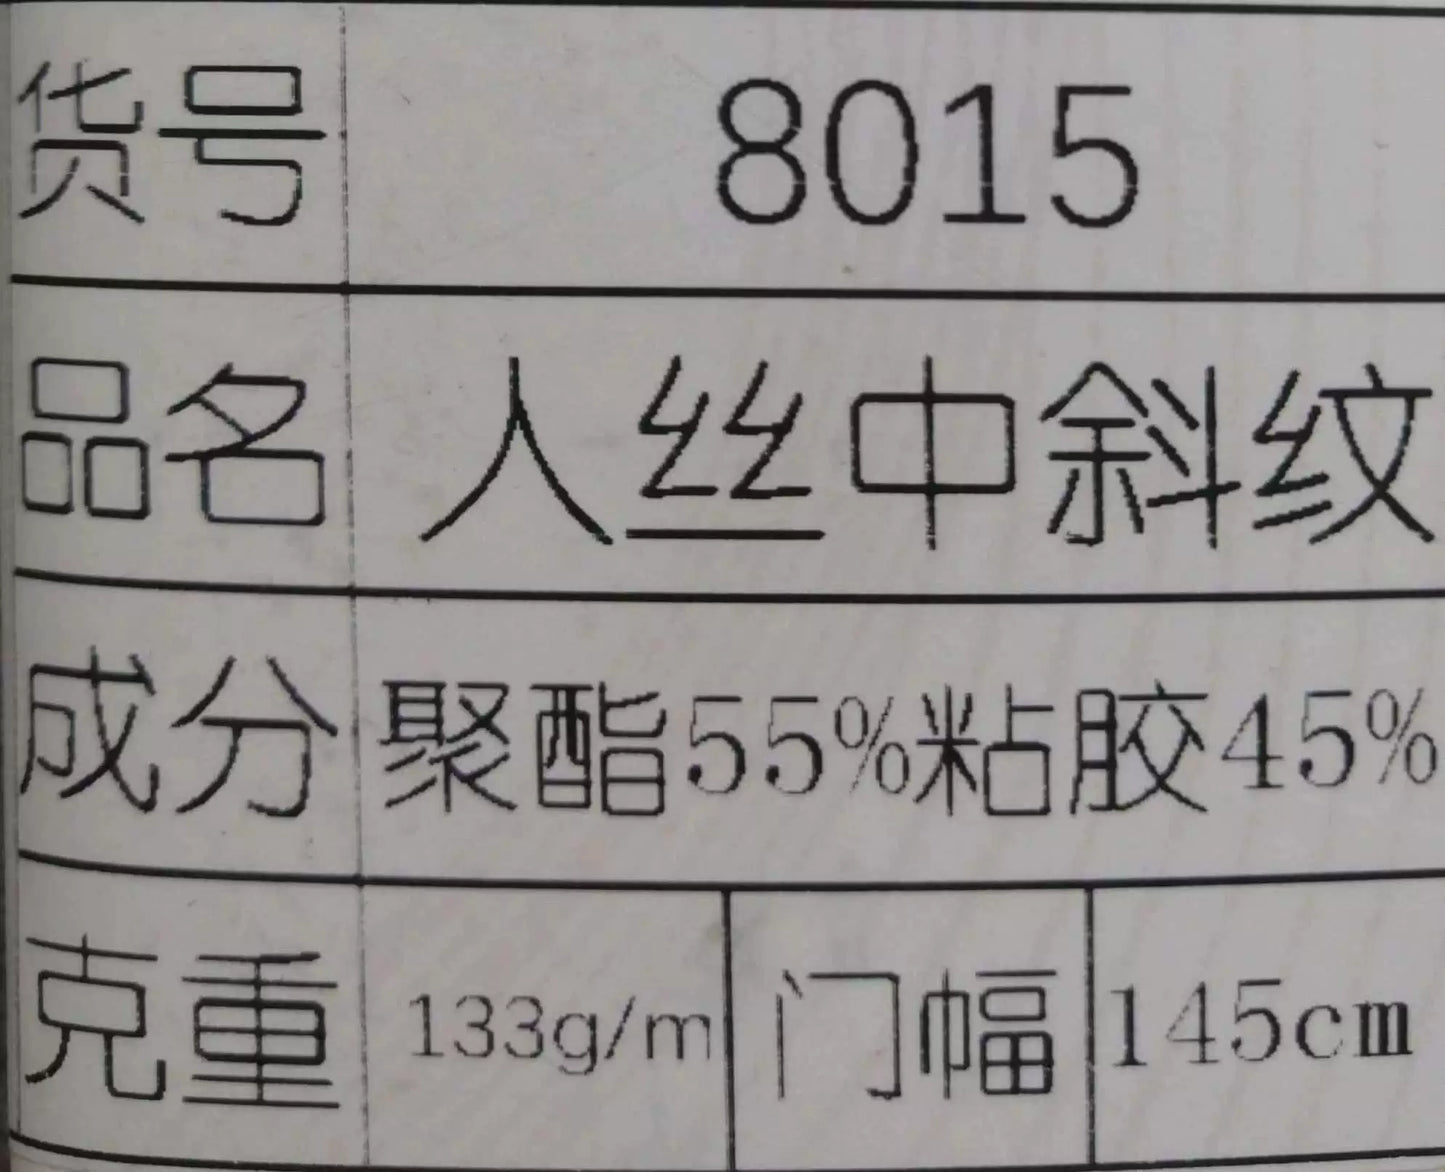 货号 8015
品名 人丝中斜纹
成分 聚酯55%粘胶45%
克重 133g/m 门幅 145cm